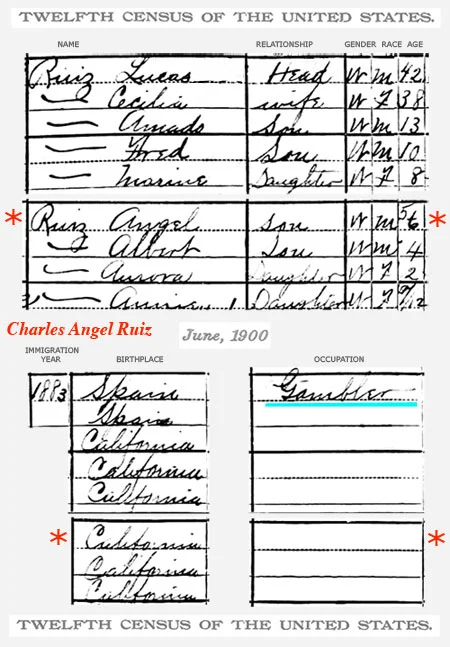 TWELFTH CENSUS OF THE UNITED STATES.
NAME RELATIONSHIP GENDER RACE AGE
Ruiz Lucas Head W M 42
— Cecilia wife W F 38
— Amado Son W M 13
— Fred Son W M 10
— Marine Daughter W F 8
* Ruiz Angel son W M 5/6 *
— Albert Son W M 4
— Aurora Daughter W F 2
— Annie Daughter W F 9/12
Charles Angel Ruiz June, 1900
IMMIGRATION YEAR BIRTHPLACE OCCUPATION
1883 Spain Gambler
Spain
California
California
California
* California *
California
California
TWELFTH CENSUS OF THE UNITED STATES.